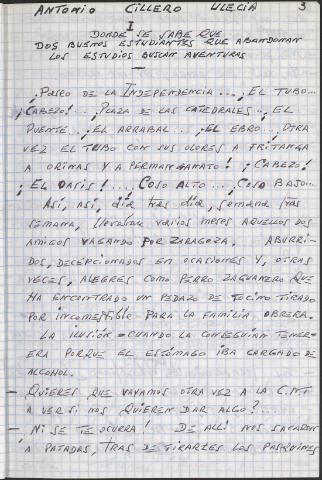 ANTONIO CILLERO ULECIA 3
I
DONDE SE SABE QUE
DOS BUENOS ESTUDIANTES QUE ABANDONAN
LOS ESTUDIOS BUSCAN AVENTURAS
¡PASEO DE LA INDEPENDENCIA... ¡EL TUBO...
¡CABEZO!... ¡PLAZA DE LAS CATEDRALES... ¡EL
PUENTE... ¡EL ARRABAL... ¡EL EBRO... OTRA
VEZ EL TUBO CON SUS OLORES A FRITANGA
A ORINAS Y A PERMANGANATO! ¡CABEZO!
¡EL OASIS!... ¡COSO ALTO... ¡COSO BAJO...
ASÍ, ASÍ, DÍA TRAS DÍA, SEMANA TRAS
SEMANA, LLEVABAN VARIOS MESES AQUELLOS DOS
AMIGOS VAGANDO POR ZARAGOZA. ABURRI-
DOS, DECEPCIONADOS EN OCASIONES Y, OTRAS
VECES, ALEGRES COMO PERRO ZAGUANERO QUE
HA ENCONTRADO UN PEDAZO DE TOCINO TIRADO
POR INCOMESTIBLE PARA LA FAMILIA OBRERA.
LA ILUSIÓN - CUANDO LA CONSEGUÍAN TENER -
ERA PORQUE EL ESTÓMAGO IBA CARGADO DE
ALCOHOL.
- QUIERES QUE VAYAMOS OTRA VEZ A LA C.N.T
A VER SI NOS QUIEREN DAR ALGO?...
- NI SE TE OCURRA! DE ALLÍ NOS SACARON
A PATADAS, TRAS DE TIRARLES LOS PASQUINES